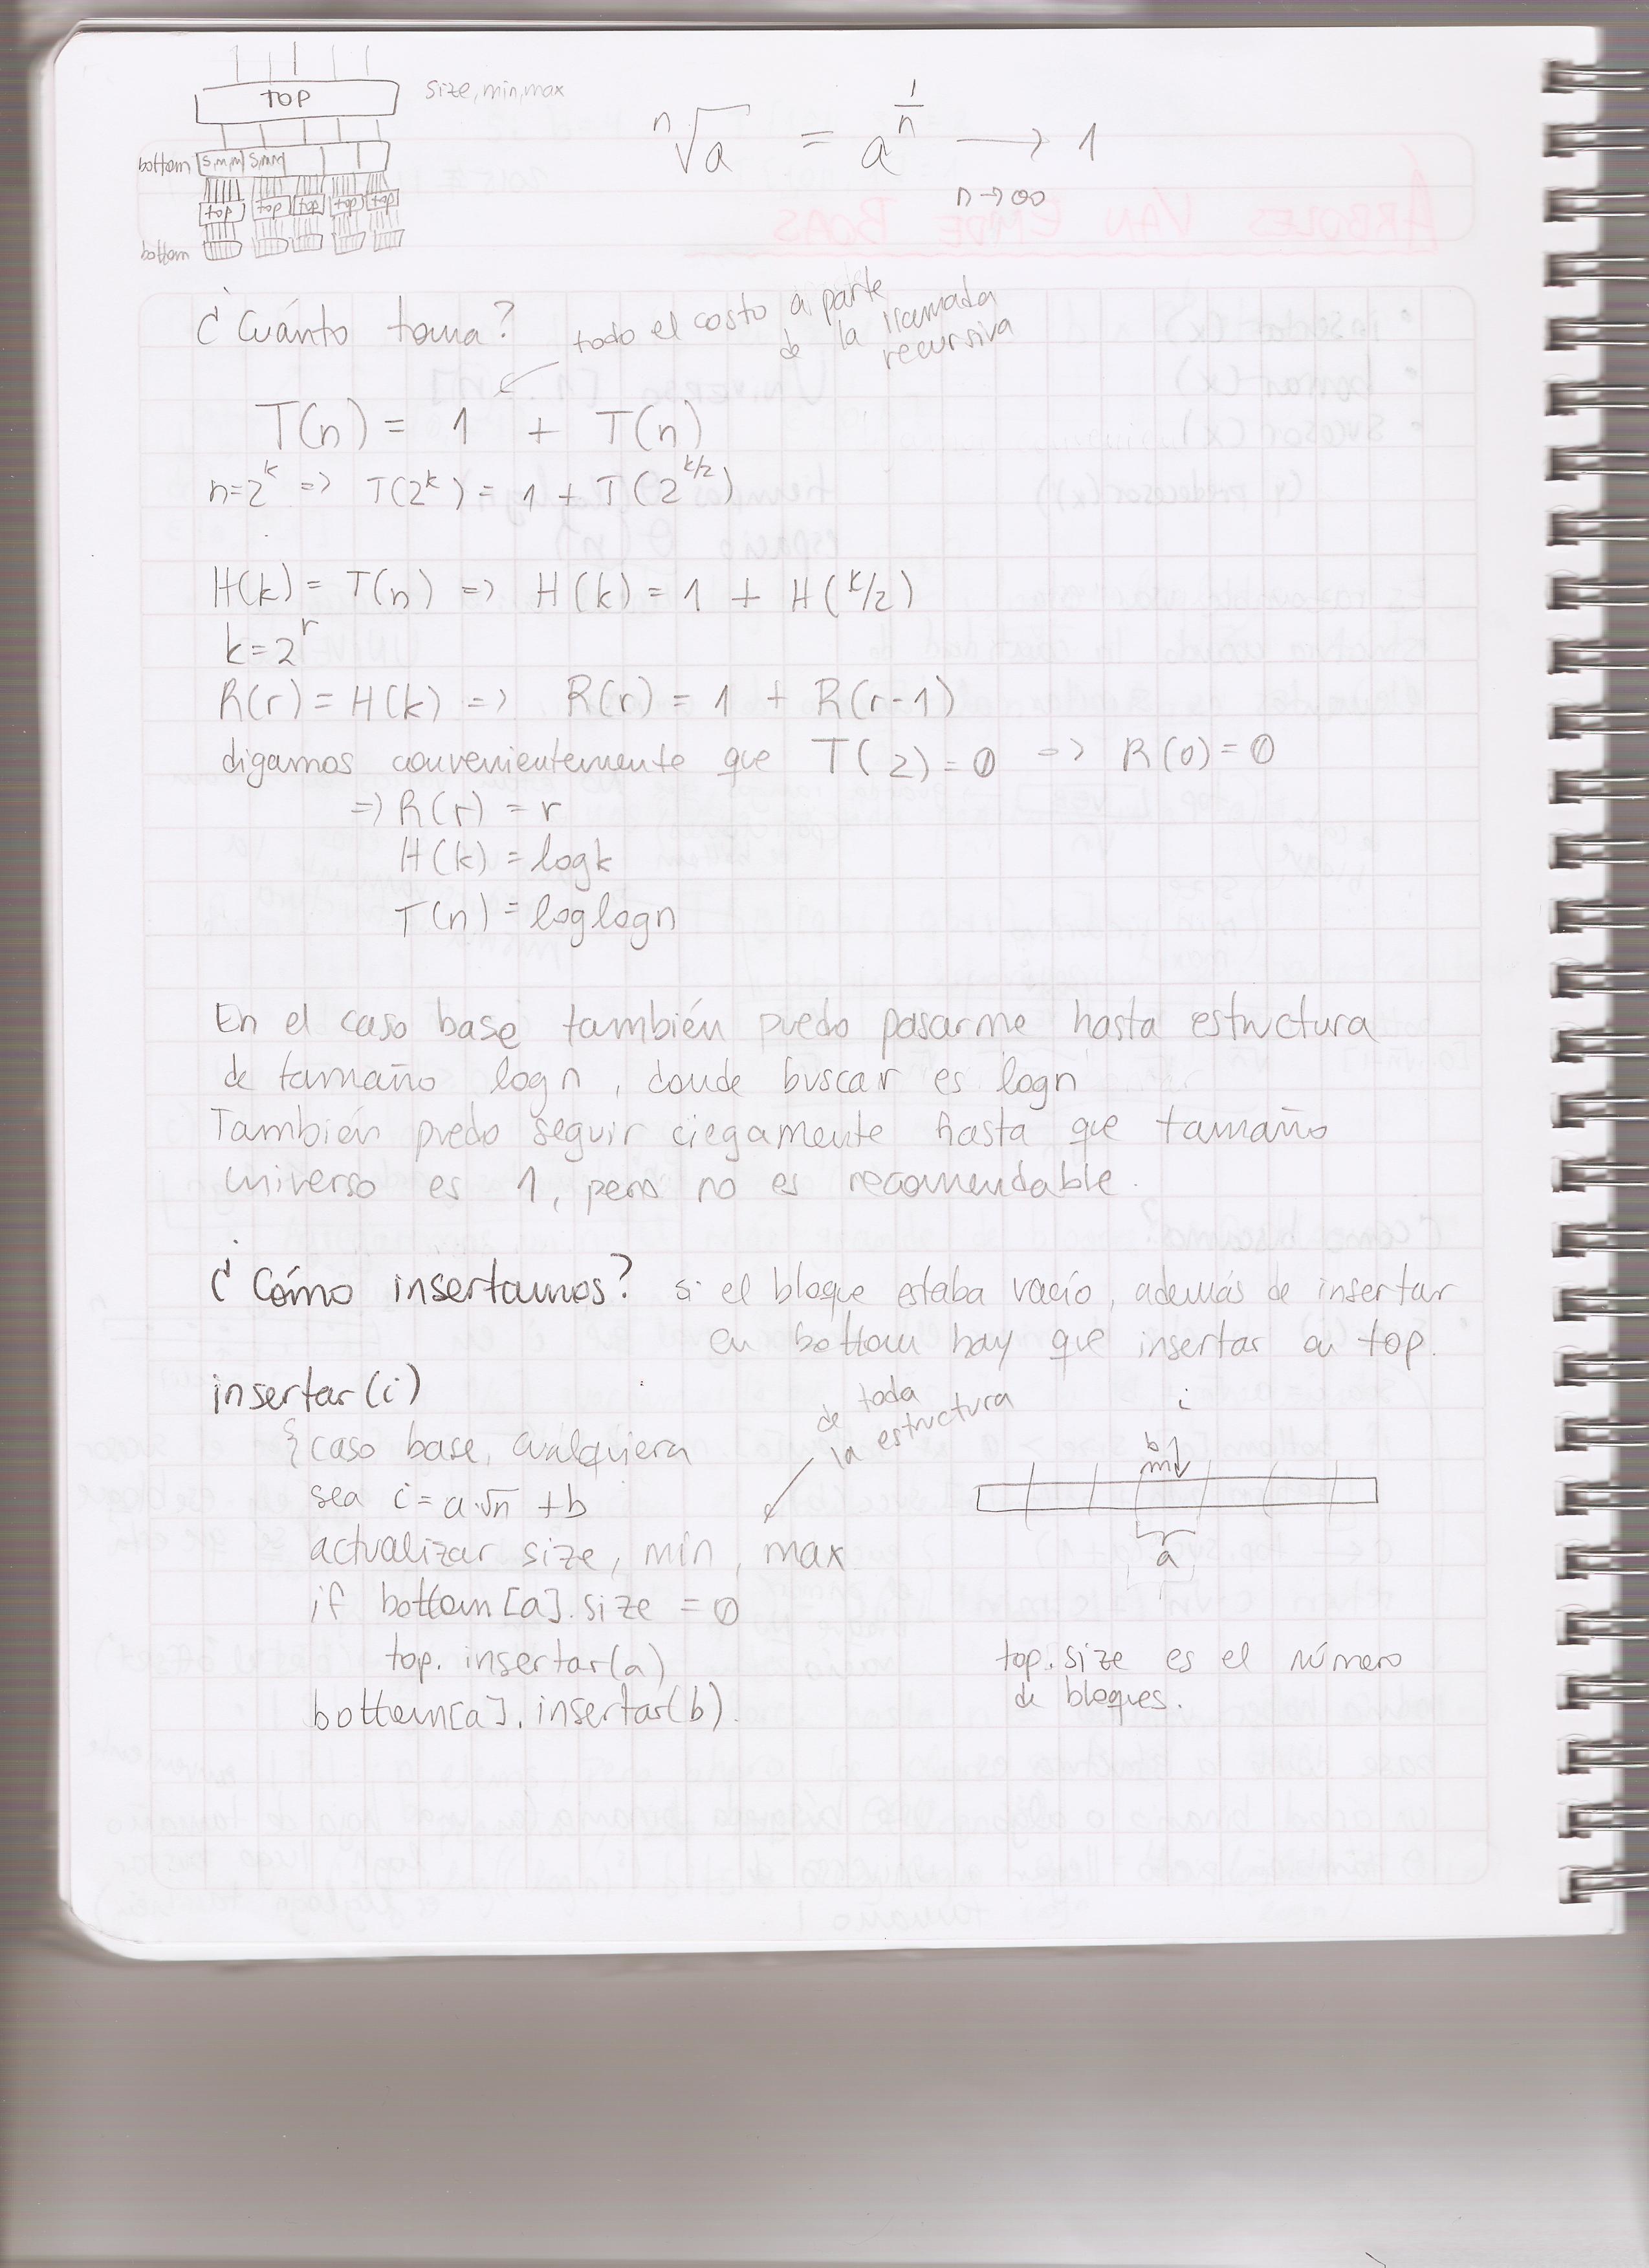 TOP
size, min, max
bottom s,m,m s,m,m
top top top top top
bottom
ⁿ√a = a^(1/n) → 1
n→∞
¿Cuánto toma?
todo el costo a parte
de la llamada
recursiva
T(n) = 1 + T(n)
n=2^k => T(2^k) = 1 + T(2^(k/2))
H(k) = T(n) => H(k) = 1 + H(k/2)
k=2^r
R(r) = H(k) => R(r) = 1 + R(r-1)
digamos convenientemente que T(2)=0 => R(0)=0
=> R(r) = r
H(k) = logk
T(n) = loglogn
En el caso base también puedo pasarme hasta estructura
de tamaño logn, donde buscar es logn
También puedo seguir ciegamente hasta que tamaño
universo es 1, pero no es recomendable.
¿Cómo insertamos? si el bloque estaba vacío, además de insertar
en bottom hay que insertar en top.
insertar(i)
de toda
la estructura
{caso base, cualquiera
sea i=a·√n +b
actualizar size, min, max
if bottom[a].size = 0
top.insertar(a)
bottom[a].insertar(b).
i
b
a
top.size es el número
de bloques.